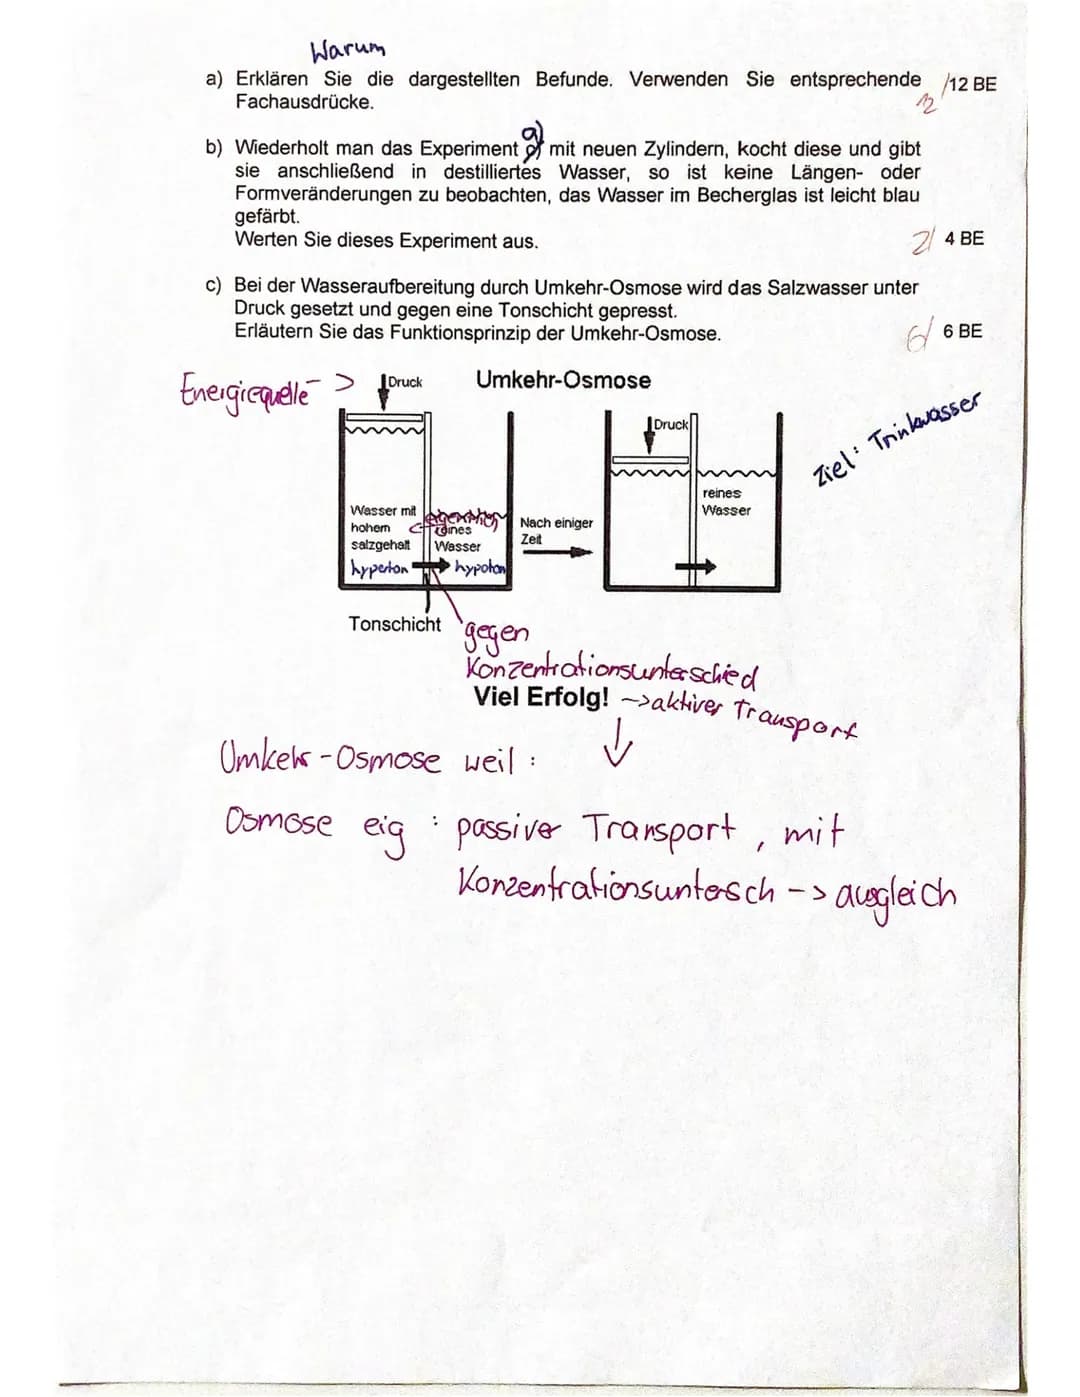 Warum
a) Erklären Sie die dargestellten Befunde. Verwenden Sie entsprechende /12 BE
Fachausdrücke.
12
b) Wiederholt man das Experiment a) mit neuen Zylindern, kocht diese und gibt
sie anschließend in destilliertes Wasser, so ist keine Längen- oder
Formveränderungen zu beobachten, das Wasser im Becherglas ist leicht blau
gefärbt.
Werten Sie dieses Experiment aus. 2/ 4 BE
c) Bei der Wasseraufbereitung durch Umkehr-Osmose wird das Salzwasser unter
Druck gesetzt und gegen eine Tonschicht gepresst.
Erläutern Sie das Funktionsprinzip der Umkehr-Osmose. 6/ 6 BE
Energiequelle -> Druck Umkehr-Osmose
Druck
Ziel: Trinkwasser
Wasser mit
hohem
salzgehalt
eigentlich
reines
Wasser
hyperton -> hypoton
Nach einiger
Zeit
reines
Wasser
Tonschicht
gegen
Konzentrationsunterschied
Viel Erfolg! -> aktiver Transport
Umkehr-Osmose weil :
Osmose eig : passiver Transport, mit
Konzentrationsuntersch -> ausgleich